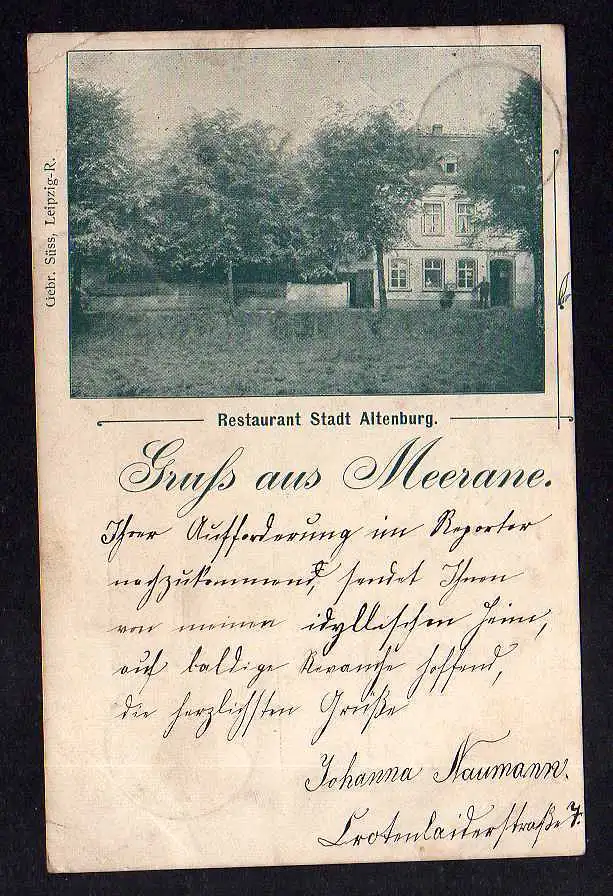 Gebr. Süss, Leipzig-R.
Restaurant Stadt Altenburg.
Gruß aus Meerane.
Ihrer Aufforderung im Reporter
nachzukommend, sendet Ihnen
von meinen idyllischen Heim,
auf baldige Revanche hoffend,
die herzlichsten Grüße
Johanna Naumann.
Crotenlaiderstraße 7.